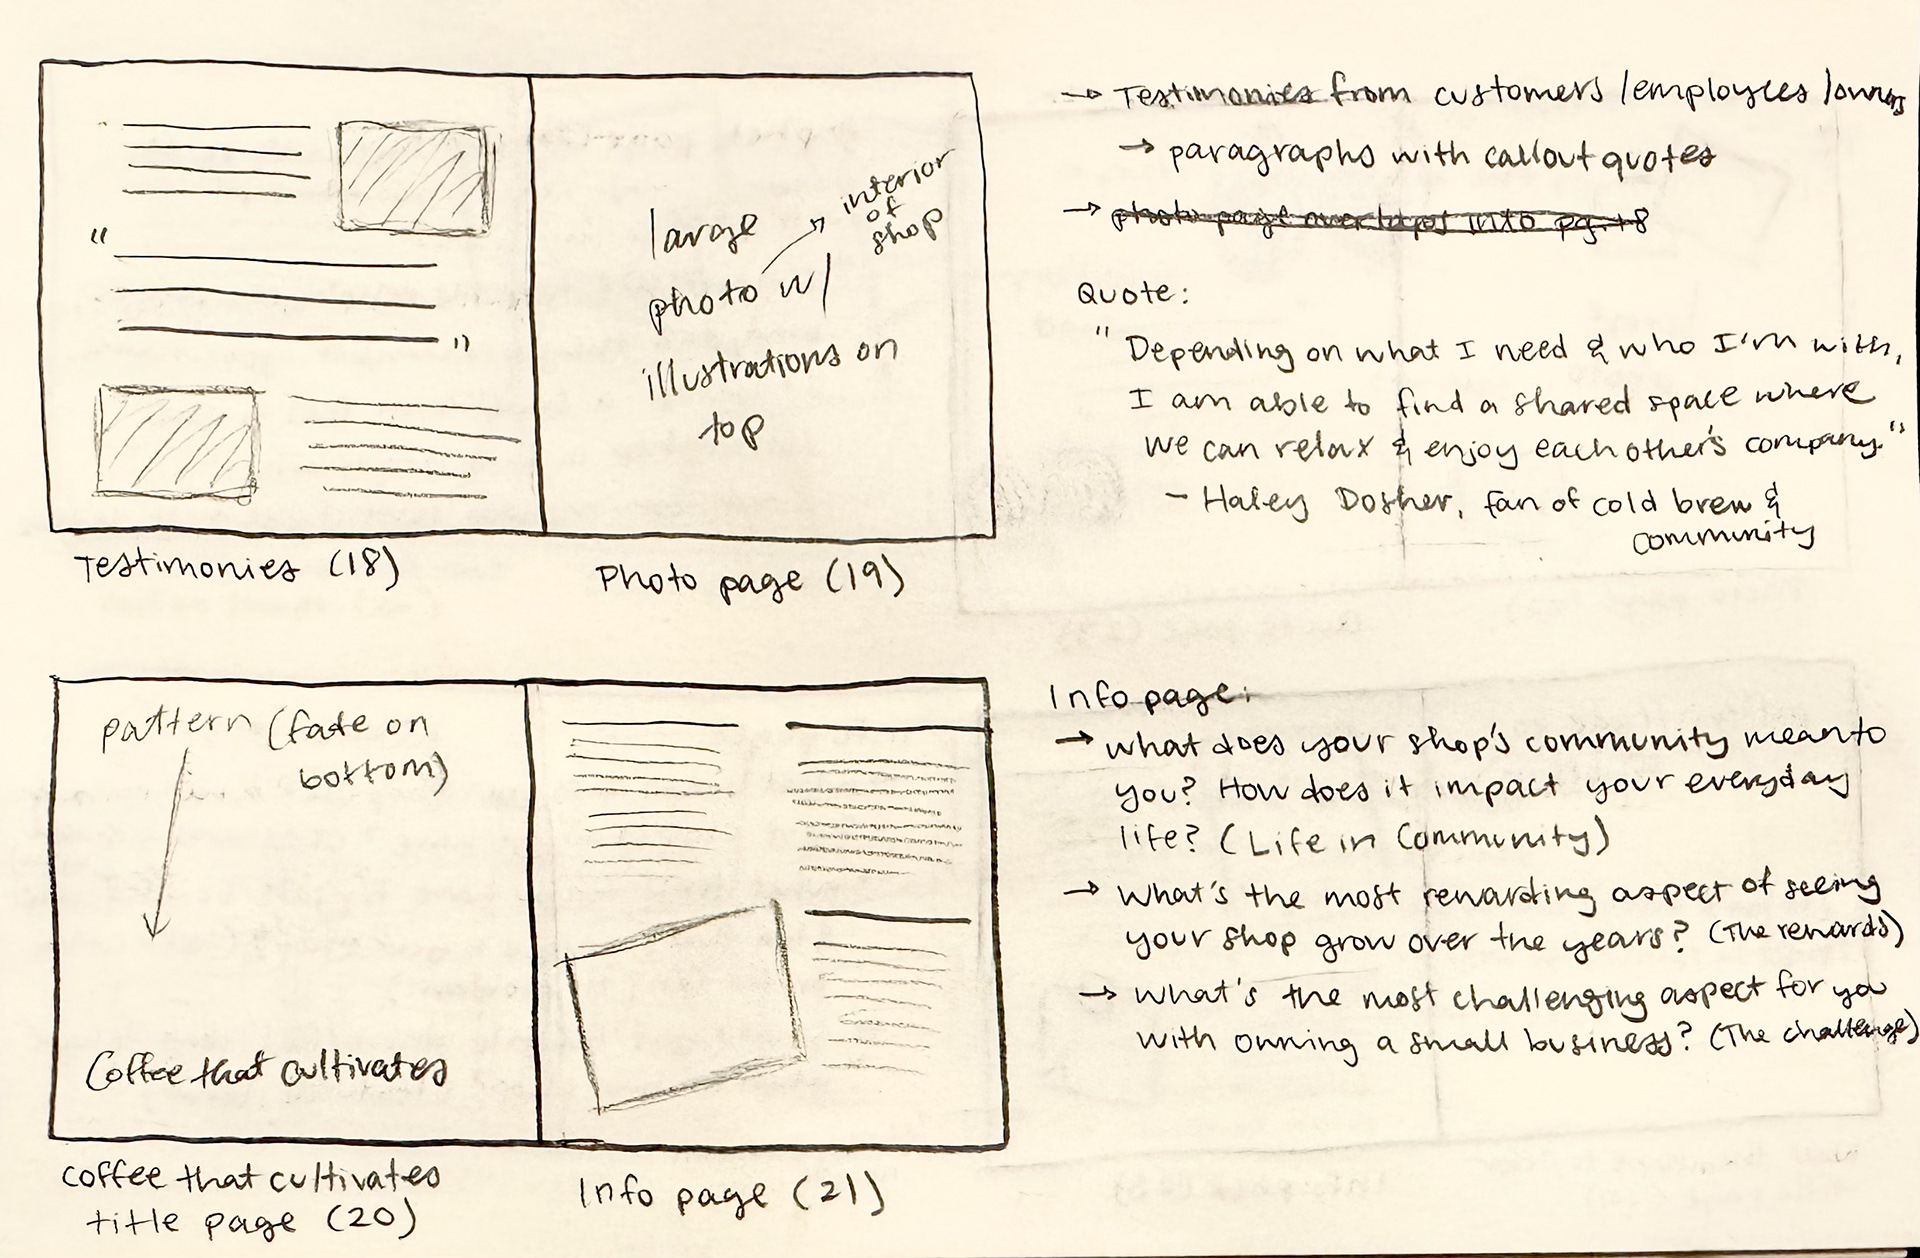 large
photo w/ → interior
of
shop
illustrations on
top
“
”
Testimonies (18)
Photo page (19)
→ Testimonies from customers /employees /owners
→ paragraphs with callout quotes
→ photo page overlaps into pg. 18
Quote:
“Depending on what I need & who I'm with,
I am able to find a shared space where
we can relax & enjoy each other's company.”
- Haley Dosher, fan of cold brew &
community
pattern (fade on
bottom)
Coffee that cultivates
coffee that cultivates
title page (20)
Info page (21)
Info page:
→ what does your shop's community mean to
you? How does it impact your everyday
life? (Life in Community)
→ What's the most rewarding aspect of seeing
your shop grow over the years? (The rewards)
→ What's the most challenging aspect for you
with owning a small business? (The challenge)